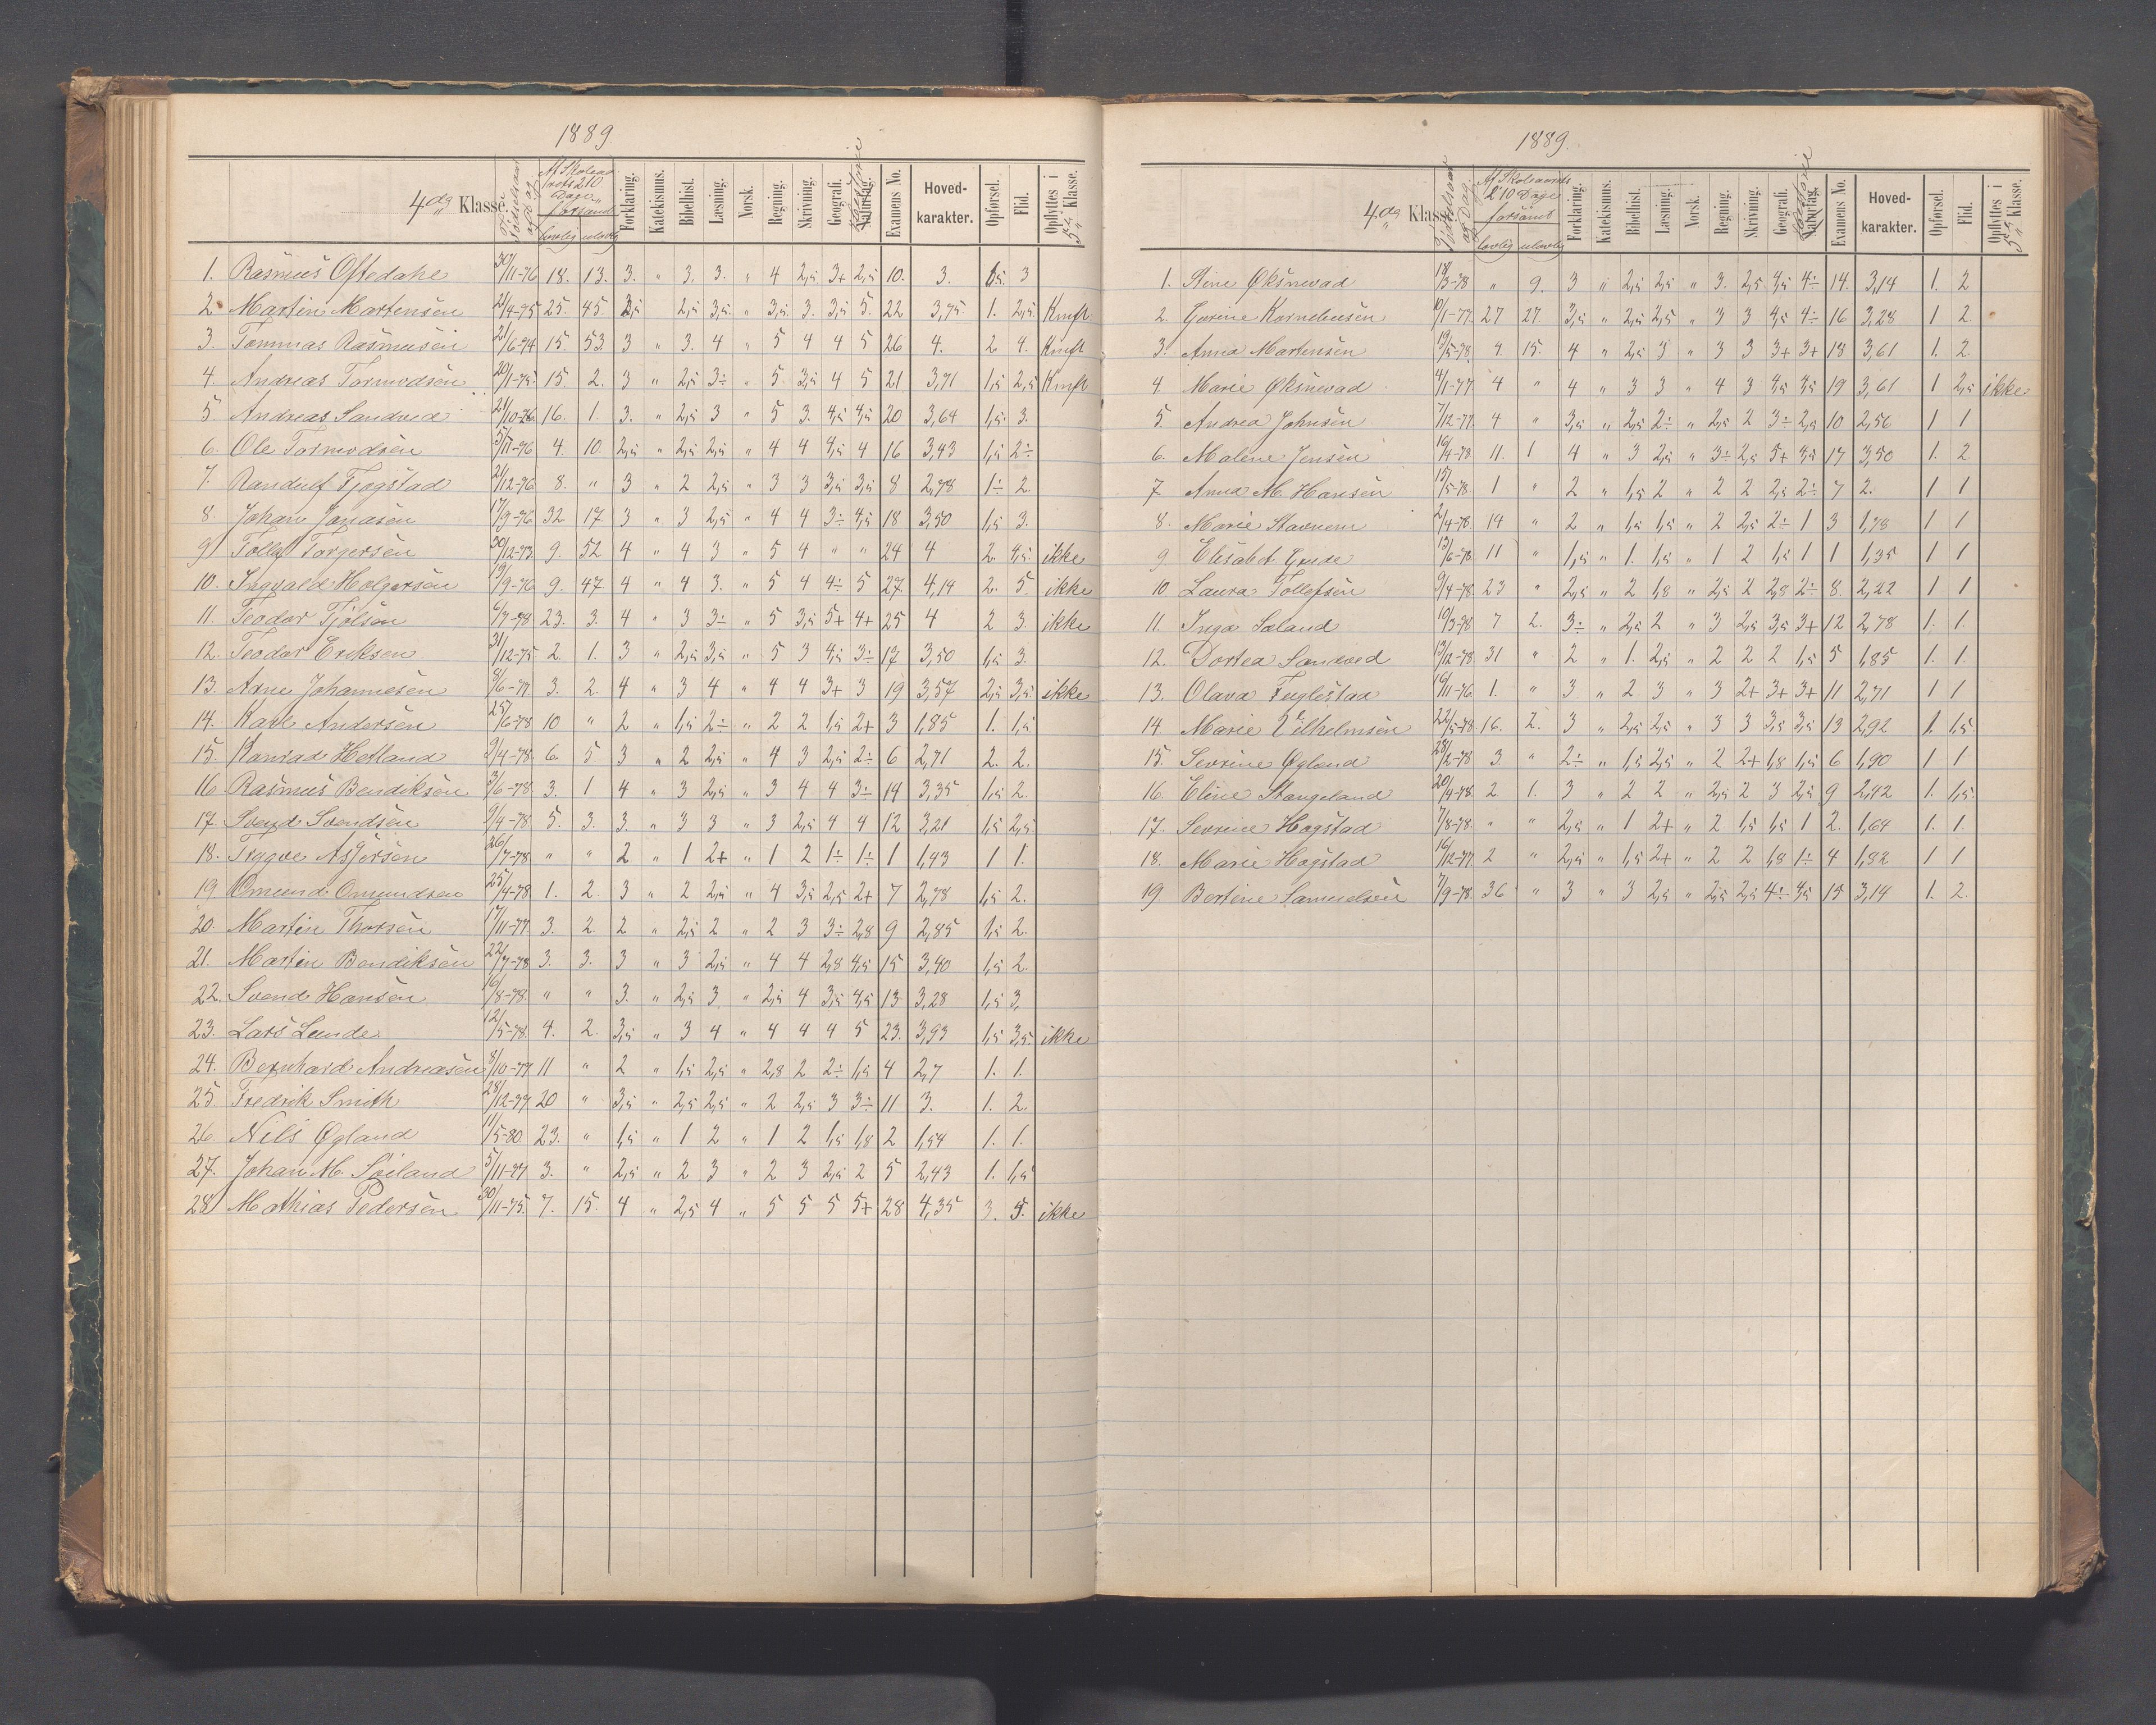 1889
4de Klasse. Af Skoleaarets 210 Dage forsømt lovlig ulovlig Forklaring. Katekismus. Bibelhist. Læsning. Norsk. Regning. Skrivning. Geografi. Naturfag. Historie Examens No. Hovedkarakter. Opførsel. Flid. Opflyttes i 5te Klasse.
1. Rasmus Oftedahl 30/11-76 18. 13. 3. " 3. 3. " 4 2,5 3+ 2,5 10. 3. 1,5. 3
2. Martin Martensen 21/4-75 25. 45 3,5 2,5 3,5 " 3,5 3. 3,5 5. 22 3,75. 1. 2,5 Knft
3. Tommas Rasmusen 21/6-74 15. 53 3 " 3. 4 " 5 4 4 5 26 4. 2 4. Knft
4. Andreas Tormodsen 20/1-75 15. 2. 3 " 2,5 3÷ " 5 3,5 4 5 21 3,71 1,5 2,5 Knft
5 Andreas Sandved 21/10-76 16. 1. 3. " 2,5 3 " 5 3. 4,5 4,5 20 3,64 1,5. 3.
6. Ole Tormodsen 5/11-76 4. 10. 2,5 " 2,5 2,5 " 4 4 4,5 4 16 3,43 1,5 2÷
7. Randulf Tjøgstad 21/12-76 8. " 3 " 2 2,5 " 3 3 3,5 3,5 8 2,78 1÷ 2.
8. Johan Jonasen 17/9-76 32 17 3 " 3 2,5 " 4 4 3÷ 4,5 18 3,50 1,5 3.
9. Tollef Torgersen 30/12-73 9. 52 4 " 4 3 " 5 4 " " 24 4 2. 4,5 ikke
10. Ingvald Holgersen 19/9-76 9. 47 4 " 4 3. " 5 4 4÷ 5 27. 4,14 2. 5. ikke
11. Teodor Tjølsen 6/7-78 23. 3. 4 " 3 3÷ " 5 3,5 5+ 4+ 25 4 2 3. ikke
12. Teodor Eriksen 31/12-75 2. 1. 3 " 2,5 3,5 " 5 3 4,5 3÷ 17 3,50 1,5 3.
13. Arne Johannesen 8/6-77. 3. 2. 4 " 3 4 " 4 4 3+ 3 19 3,57 2,5 3,5 ikke
14. Karl Andersen 25/6-78 10 " 2 " 1,5 2÷ " 2 2 1,5 2+ 3 1,85 1. 1,5
15. Konrad Hetland 9/4-78. 6. 5 3 " 2 2,5 " 4 3 2,5 2÷ 6 2,71 2. 2.
16. Rasmus Bendiksen 3/6-78. 3. 1 4 " 3 2,5 " 3 4 4 3÷ 14 3,35 1,5 2.
17. Svend Svendsen 9/4-78 5. 3. 3. " 3 3 " 3 2,5 4 4 12 3,21 1,5 2,5
18. Trygve Asjersen 26/7-78 " " 2 " 1 2+ " 1 2 1÷ 1÷ 1 1,43 1 1.
19 Omund Omundsen 25/4-78 1. 2. 3 " 2 2,5 " 4 3,5 2,5 2+ 7 2,78 1,5 2.
20. Martin Thorsen 17/11-77. 3. 2. 2 " 2,5 2 " 2 3 3÷ 2,8 9 2,85 1,5 2.
21. Martin Bendiksen 22/7-78 3. 3. 3 " 3 2,5 " 4 4 2,8 4,5 15 3,40 1,5 2.
22. Svend Hansen 16/8-78. " " 3. " 2,5 3 " 2,5 4 3,5 4,5 13 3,28 1,5 3,
23. Lars Lunde 12/5-78. 4. 2. 3,5 " 3 4 " 4 4 4 5 23. 3,93 1,5 3,5 ikke
24. Bernhard Andreasen 8/10-77 11 " 2 " 1,5 2,5 " 2,8 2 2÷ 1,5 4 2,7 1. 1.
25. Fredrik Smith 28/12-77 20 " 3,5 " 2,5 2,5 " 2 2,5 3 3÷ 11 3. 1. 2.
26. Nils Øgland 11/5-80. 23. " 1,5 " 1 2 " 1 2 1,5 1,8 2 1,54 1. 1.
27. Johan M. Søiland 5/11-77 3. " 2,5 " 2 3 " 2 3 2,5 2 5 2,43 1. 1,5
28 Mathias Pedersen 30/11-75. 7. 15. 4 " 2,5 4 " 5 5 5 5+ 28 4,35 3. 5. ikke
1889.
4de Klasse. Af Skoleaarets 210 Dage forsømt lovlig ulovlig Forklaring. Katekismus. Bibelhist. Læsning. Norsk. Regning. Skrivning. Geografi. Naturfag. Historie Examens No. Hovedkarakter. Opførsel. Flid. Opflyttes i 5te Klasse.
1. Stine Øksnevad 18/3-78 " 9. 3 " 2,5 2,5 " 3. 2,5 4,5 4÷ 14. 3,14 1. 2
2. Gurine Kornelusen 10/1-77. 27 27 3,5 " 2,5 2,5 " 3 3 4,5 4÷ 16 3,28 1 2.
3. Anna Martensen 19/5-78. 4. 15. 4 " 2,5 3 " 3 3 3+ 3+ 18 3,61 1. 2.
4 Marie Øksnevad 4/1-77. 4 " 4 " 3 3 " 4 3 4,5 4,5 19 3,61 1 2,5 ikke
5 Andrea Johnsen 7/12-77. 4 " 3,5 " 2,5 2÷ " 2,5 2 3÷ 2,5 10 2,56 1 1
6. Malene Jensen 16/4-78. 11. 1 4 " 3 2,5 " 3÷ 2,5 5+ 4,5 17 3,50 1. 2.
7. Anna M. Hansen 15/5-78. 1 " 2 " 1,5 2 " 2 2 2,5 2÷ 7 2. 1 1
8. Marie Stavnem 2/4-78. 14 " 2 " 1,5 1,5 " 2 2,5 2÷ 1 3 1,78 1 1
9. Elisabet Gude 13/6-78. 11 " 1,5 " 1. 1,5 " 1 2 1,5 1 1 1,35 1 1
10. Laura Tollefsen 9/4-78. 23 " 2,5 " 2 1,8 " 2,5 2 2,8 2÷ 8. 2,22 1 1
11. Inga Soland 10/3-78 7 2. 3÷ " 2,5 2 " 3 2,5 3,5 3+ 12 2,78 1. 1.
12. Dortea Sandved 13/12-78 31 " 2 " 1. 2,5 " 2 2 2 1,5 5 1,85 1. 1.
13. Olava Fuglestad 19/11-76. 1. " 3 " 2 3 " 3 2+ 3+ 3+ 11 2,71 1 1
14. Marie Vilhelmsen 22/5-78. 16. 2. 3 " 2,5 2,5 " 3 3 3,5 3,5 13 2,92 1. 1,5.
15. Sevrine Øgland 28/2-78 3. " 2÷ " 1,5 2,5 " 2 2+ 1,8 1,5 6 1,90 1 1
16. Eline Stangeland 20/4-78. 2. 1. 3 " 2 2 " 2,5 2 3 2,5 9 2,42 1. 1,5.
17. Sevrine Hogstad 7/8-78. " " 2,5 " 1 2+ " 2 1,5 1,5 1 2. 1,64 1. 1.
18. Marie Hogstad 16/12-77. 2 " 2,5 " 1,5 2+ " 2 2 1,8 1÷ 4 1,82 1 1
19. Bertine Samuelsen 7/9-78. 36 " 3 " 3 2,5 " 2,5 2,5 4÷ 4,5 15 3,14 1. 2.